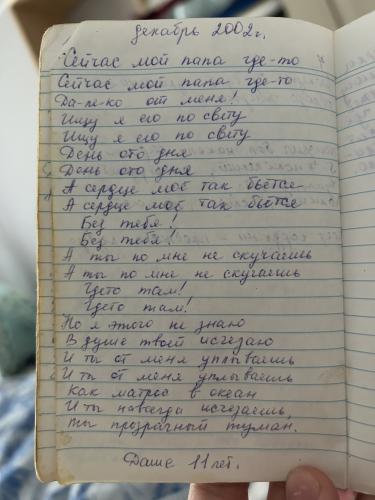 декабрь 2002г.
Сейчас мой папа где-то
Сейчас мой папа где-то
Да-ле-ко от меня!
Ищу я его по свету
Ищу я его по свету
День ото дня
День ото дня
А сердце моё так бьётся
А сердце моё так бьётся
Без тебя!
Без тебя!
А ты по мне не скучаешь
А ты по мне не скучаешь
Гдето там!
Гдето там!
Но я этого не знаю
В душе твоей исчезаю
И ты от меня уплываешь
И ты от меня уплываешь
Как матрос в океан
И ты навсегда исчезаешь,
ты прозрачный туман.
Даше 11 лет.